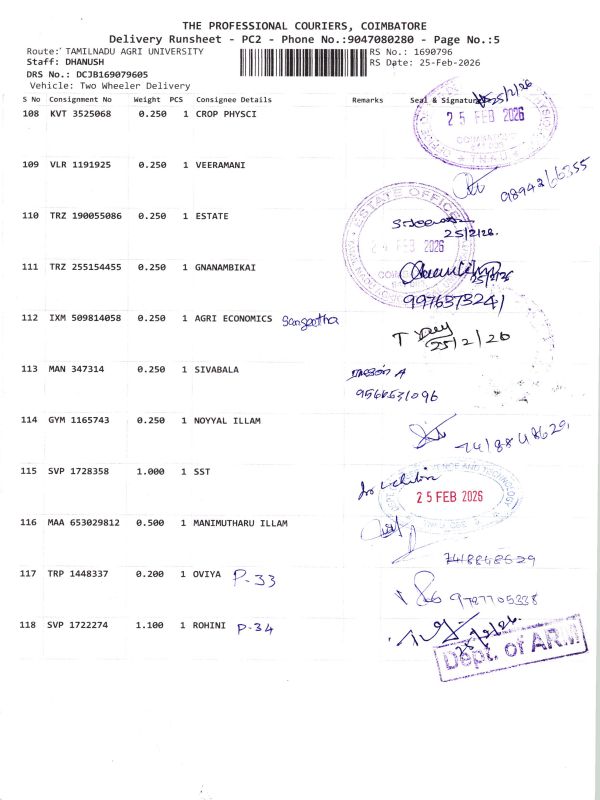 THE PROFESSIONAL COURIERS, COIMBATORE
Delivery Runsheet - PC2 - Phone No.:9047080280 - Page No.:5
Route: TAMILNADU AGRI UNIVERSITY
RS No.: 1690796
Staff: DHANUSH
RS Date: 25-Feb-2026
DRS No.: DCJB169079605
Vehicle: Two Wheeler Delivery
S No Consignment No Weight PCS Consignee Details Remarks Seal & Signature
25/2/26
108 KVT 3525068 0.250 1 CROP PHYSCI
25 FEB 2026
109 VLR 1191925 0.250 1 VEERAMANI
110 TRZ 190055086 0.250 1 ESTATE
ESTATE OFFICE
25/2/26.
FEB 2026
111 TRZ 255154455 0.250 1 GNANAMBIKAI
112 IXM 509814058 0.250 1 AGRI ECONOMICS Sangeetha
25/2/26
113 MAN 347314 0.250 1 SIVABALA
114 GYM 1165743 0.250 1 NOYYAL ILLAM
115 SVP 1728358 1.000 1 SST
25 FEB 2026
116 MAA 653029812 0.500 1 MANIMUTHARU ILLAM
117 TRP 1448337 0.200 1 OVIYA P-33
118 SVP 1722274 1.100 1 ROHINI P-34
Dept. of ARM